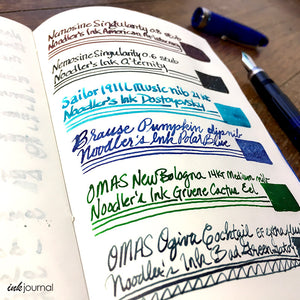 Nemosine Singularity 0.8 stub
Noodler's Ink American
Nemosine Singularity 0.6 stub
Noodler's Ink Q'ternity
Sailor 1911L Music nib 21kt
Noodler's Ink Dostoyevsky
Brause Pumpkin dip nib
Noodler's Ink Polar Blue
OMAS New Bologna 14kt Medium nib
Noodler's Ink Gruene Cactus Eel
OMAS Ogiva Cocktail EF extra flex
Noodler's Ink Bad Green Gator
ink journal